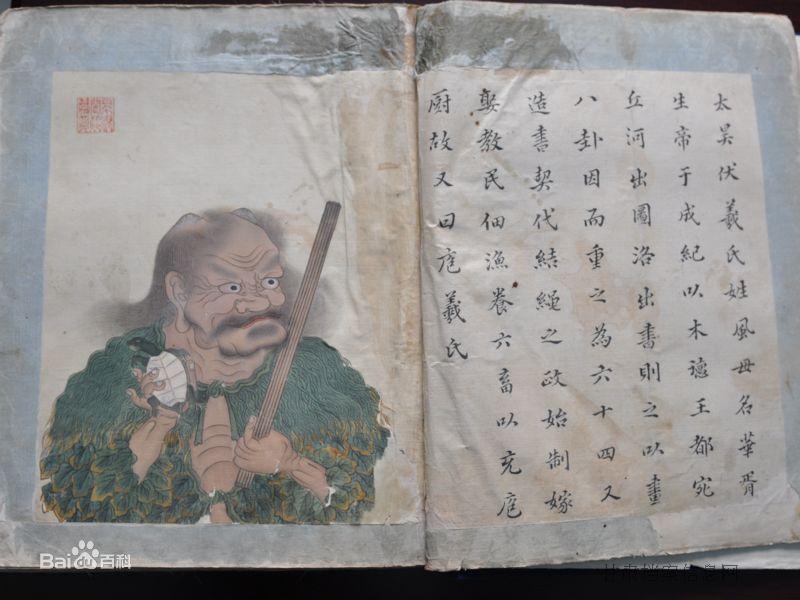 太昊伏羲氏姓風母名華胥
生帝于成紀以木德王都宛
丘河出圖洛出書則之以畫
八卦因而重之為六十四又
造書契代結繩之政始制嫁
娶教民佃漁養六畜以充庖
厨故又曰庖羲氏
Bai百科
甘肃档案信息网